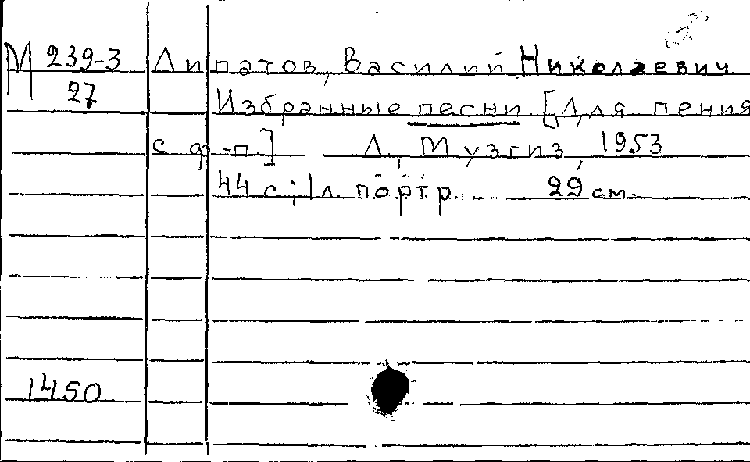 М 239-3 Липатов, Василий Николаевич
27 Избранные песни [Для пения
с ф-п.] Л., Музгиз, 1953
44 с.; 1 л. портр. 29 см.
1450